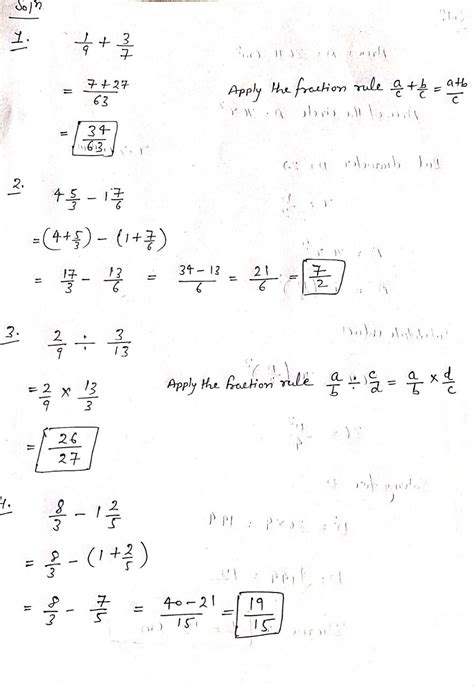 Soln
1. 1/9 + 3/7
= 7+27/63 Apply the fraction rule a/c + b/c = a+b/c
= 34/63
2. 4 5/3 - 1 7/6
= (4+5/3) - (1+7/6)
= 17/3 - 13/6 = 34-13/6 = 21/6 = 7/2
3. 2/9 ÷ 3/13
= 2/9 × 13/3 Apply the fraction rule a/b ÷ c/d = a/b × d/c
= 26/27
4. 8/3 - 1 2/5
= 8/3 - (1+2/5)
= 8/3 - 7/5 = 40-21/15 = 19/15